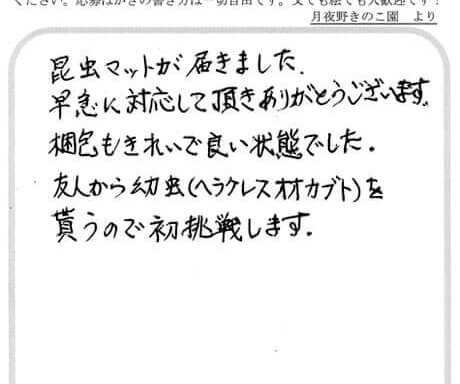 ください。応募はがきの書き方は一切自由です。文でも絵でも大歓迎です！
月夜野きのこ園　より
昆虫マットが届きました.
早急に対応して頂きありがとうございます.
梱包もきれいで良い状態でした.
友人から幼虫(ヘラクレスオオカブト)を
貰うので初挑戦します.